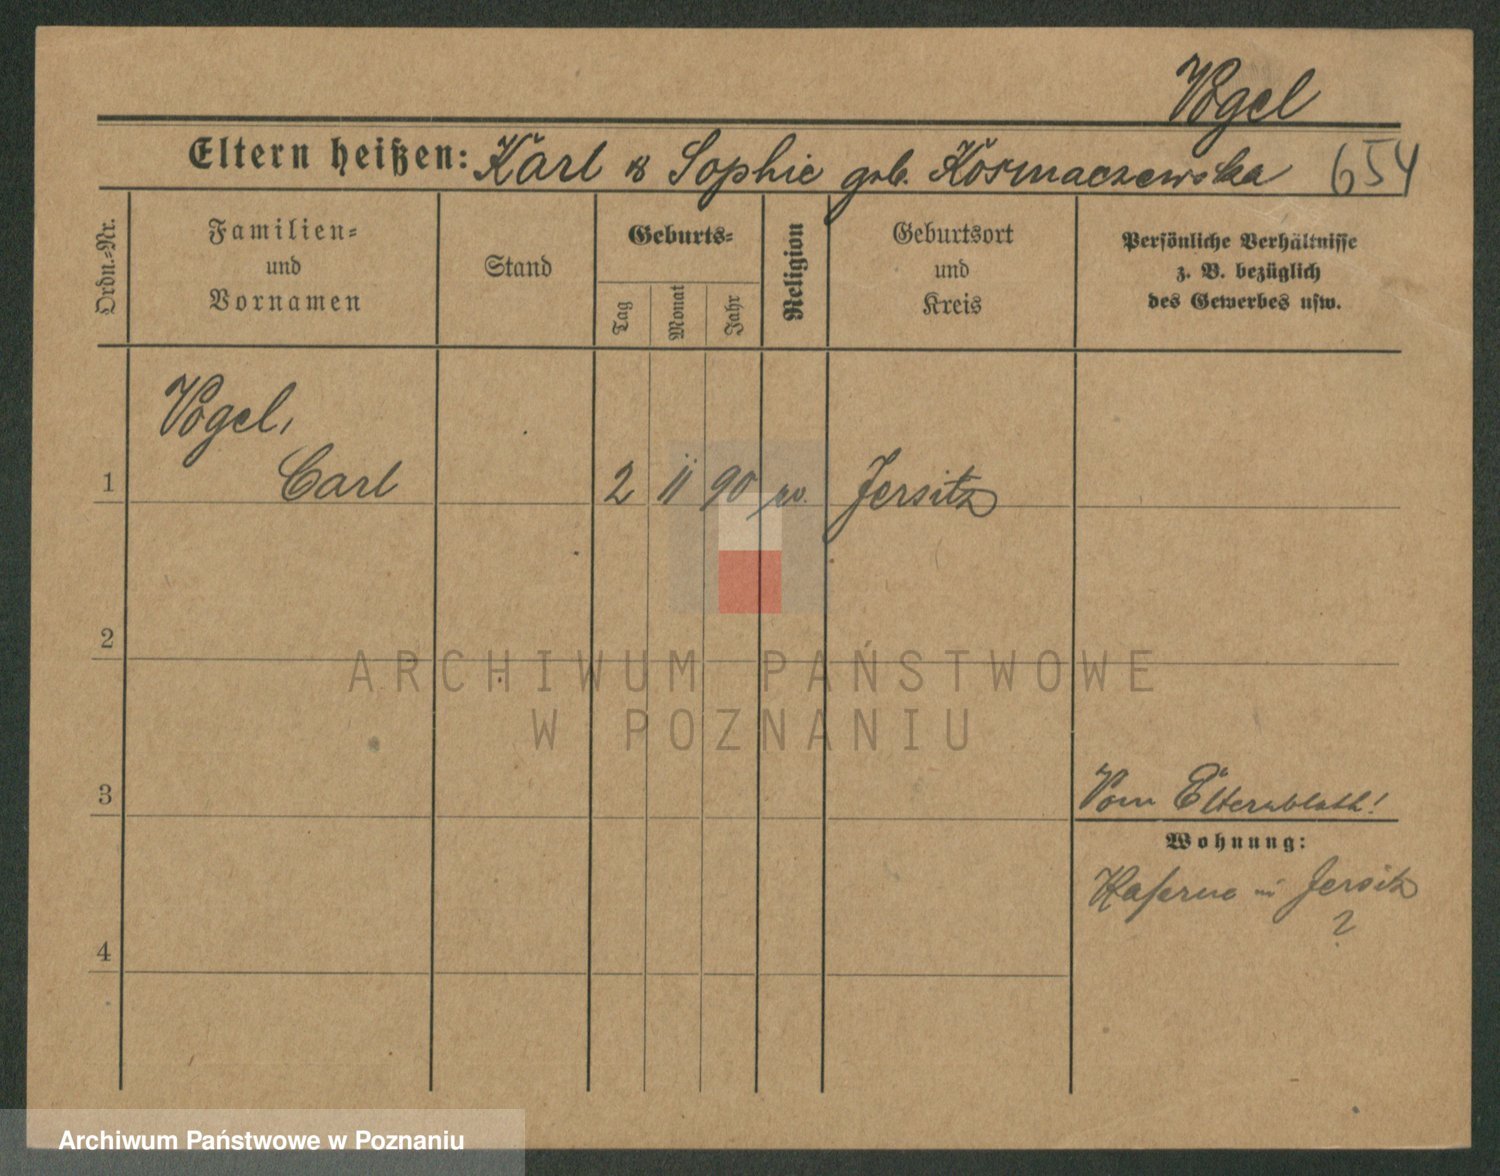 Vogel
Eltern heißen: Karl & Sophie geb. Kosmaczewska 654
Ordn.-Nr.
Familien-
und
Vornamen
Stand
Geburts-
Tag
Monat
Jahr
Religion
Geburtsort
und
Kreis
Persönliche Verhältnisse
z. B. bezüglich
des Gewerbes usw.
Vogel,
1 Carl 2 11 90 ev. Jersitz
2
ARCHIWUM PAŃSTWOWE
W POZNANIU
3
Vom Elternblatt!
Wohnung:
Kaserne in Jersitz
?
4
Archiwum Państwowe w Poznaniu